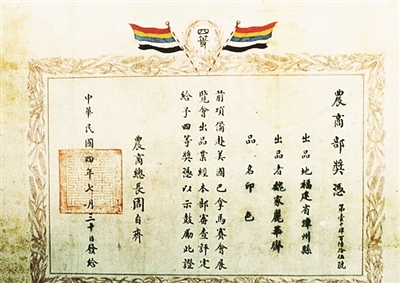 四等
農商部獎憑
第壹千肆百陸拾伍號
出品地福建省漳州縣
出品者魏家麗華齋
品名印色
前項備赴美國巴拿馬賽會展
覽會出品業經本部審查評定
給予四等獎憑以示鼓勵此證
農商總長周自齊
中華民國四年七月三十日發給